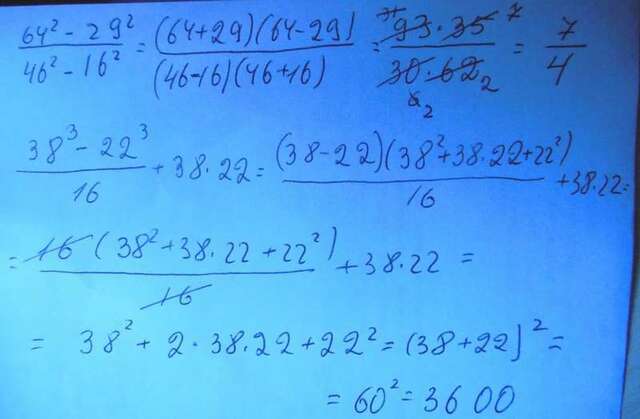 (64² - 29²)/(46² - 16²) = ((64+29)(64-29))/((46-16)(46+16)) = (93·35)/(30·62) = 7/4
(38³ - 22³)/16 + 38·22 = ((38-22)(38²+38·22+22²))/16 + 38·22 =
= (16(38²+38·22+22²))/16 + 38·22 =
= 38² + 2·38·22 + 22² = (38+22)² =
= 60² = 3600